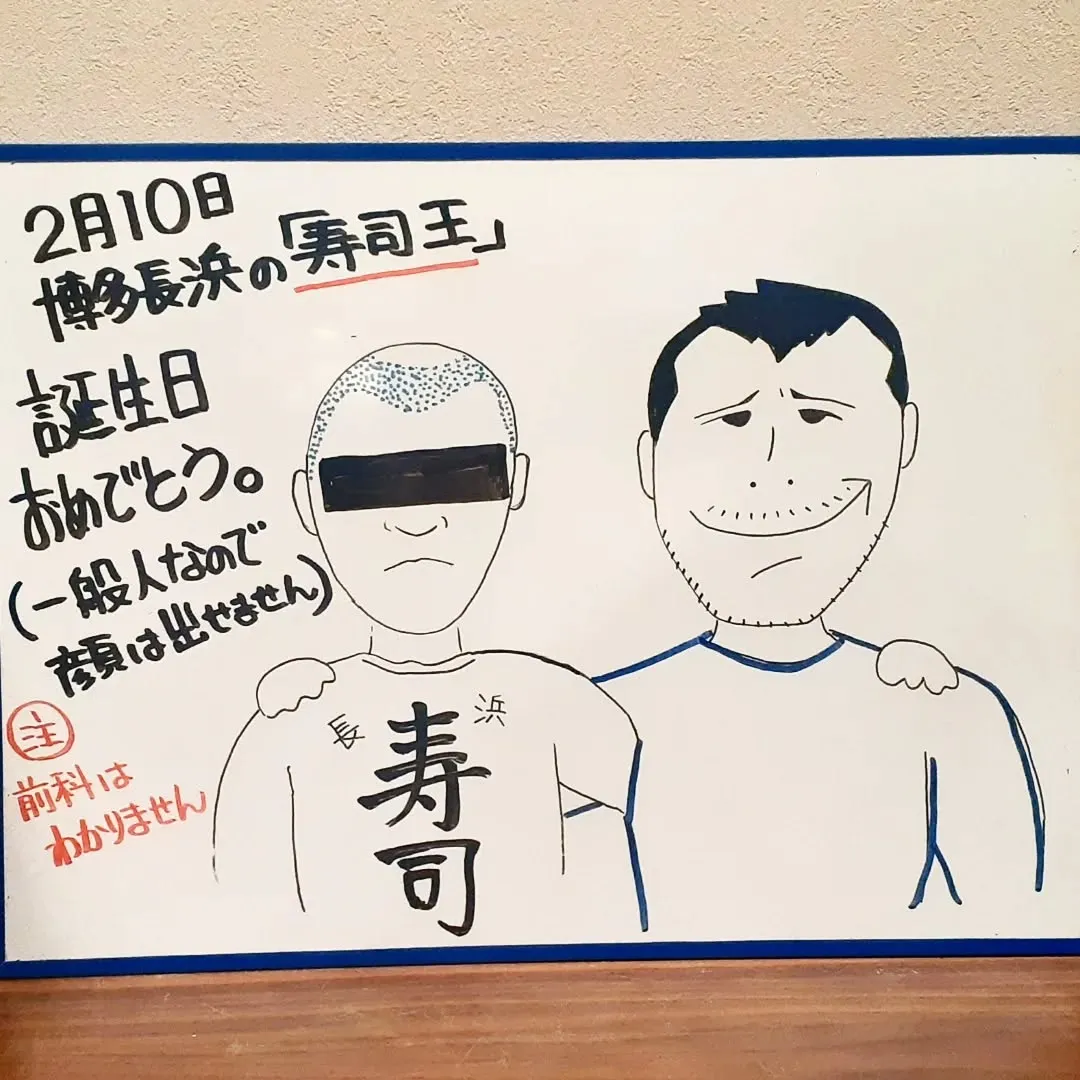 2月10日
博多長浜の「寿司王」
誕生日
おめでとう。
(一般人なので
顔は出せません)
注
前科は
わかりません
長 浜
寿
司